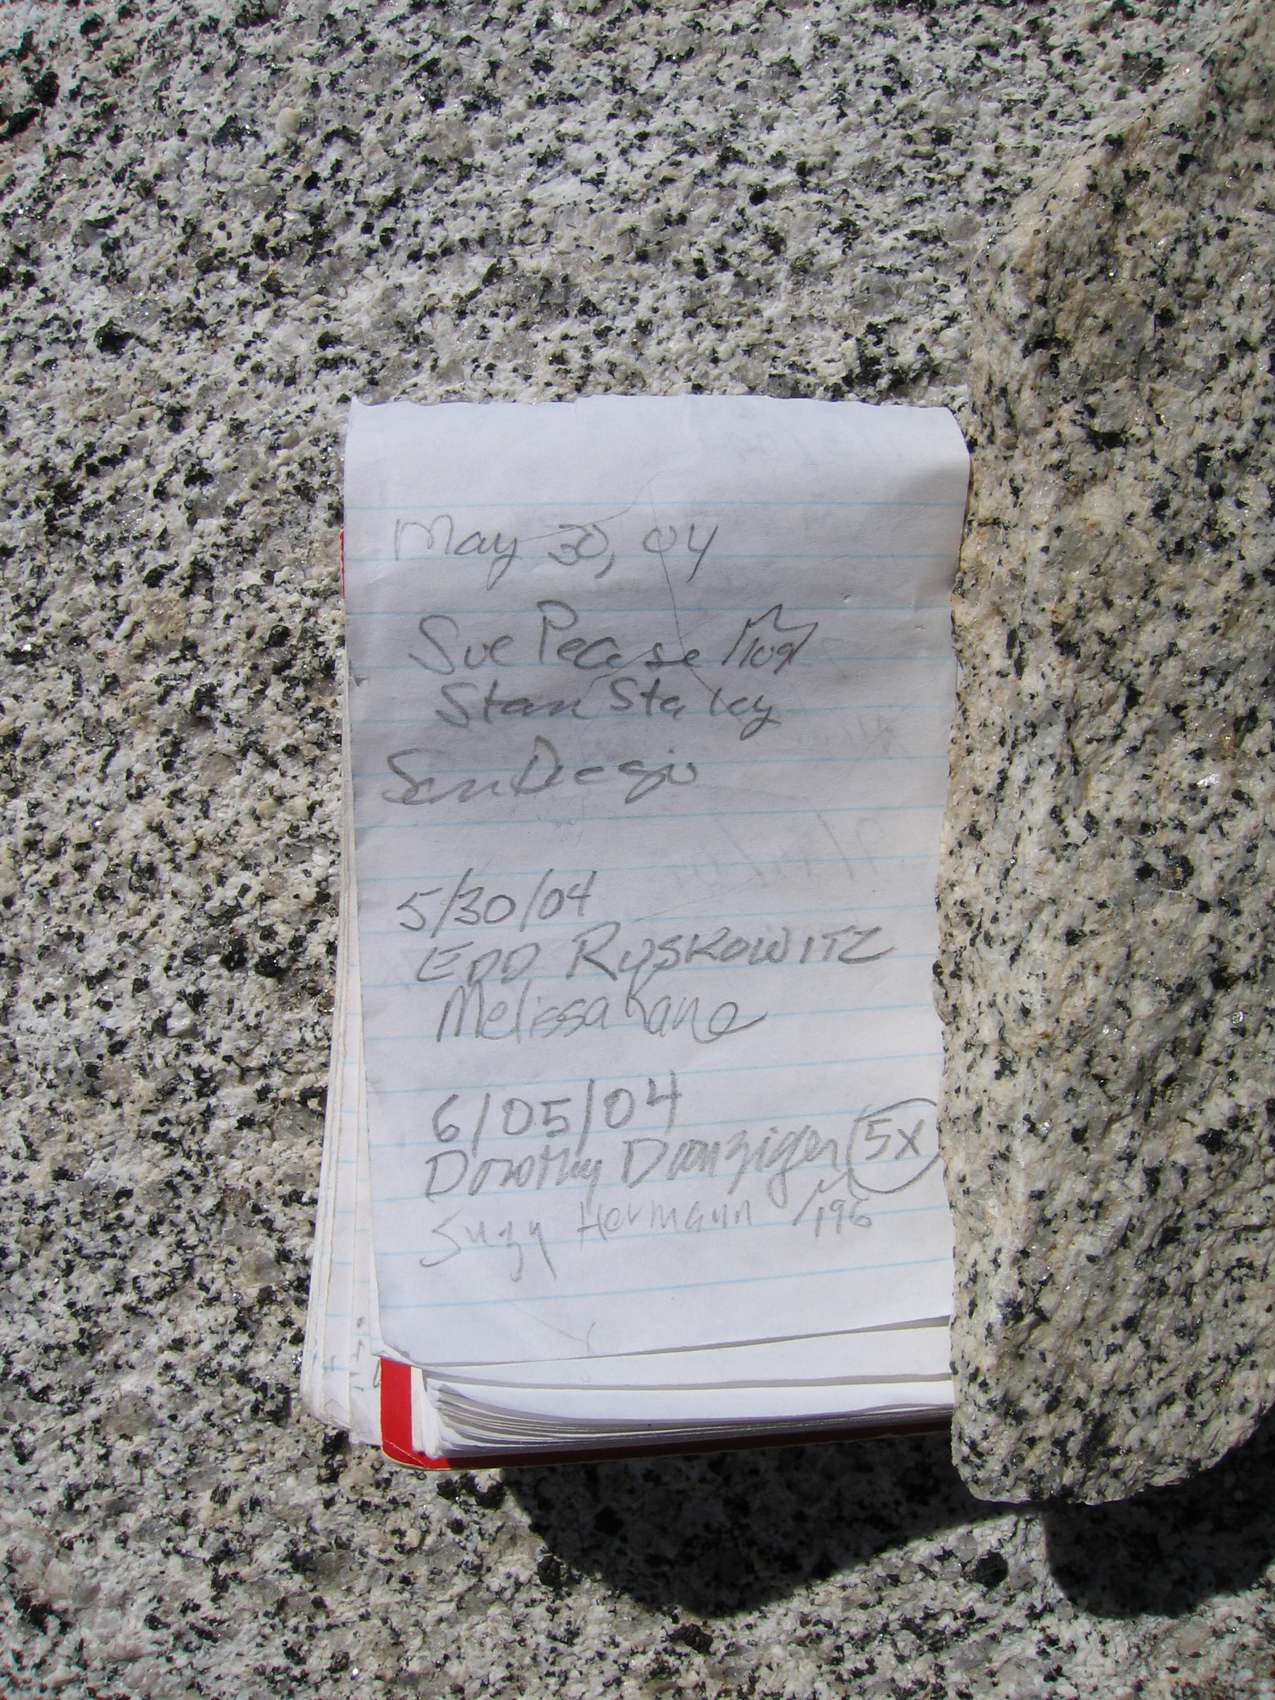 May 30, 04
Sue Pease /109/
Stan Staley
San Diego
5/30/04
EDD RUSKOWITZ
Melissa Kane
6/05/04
Dorothy Danziger 5X
Suzy Hermann /196